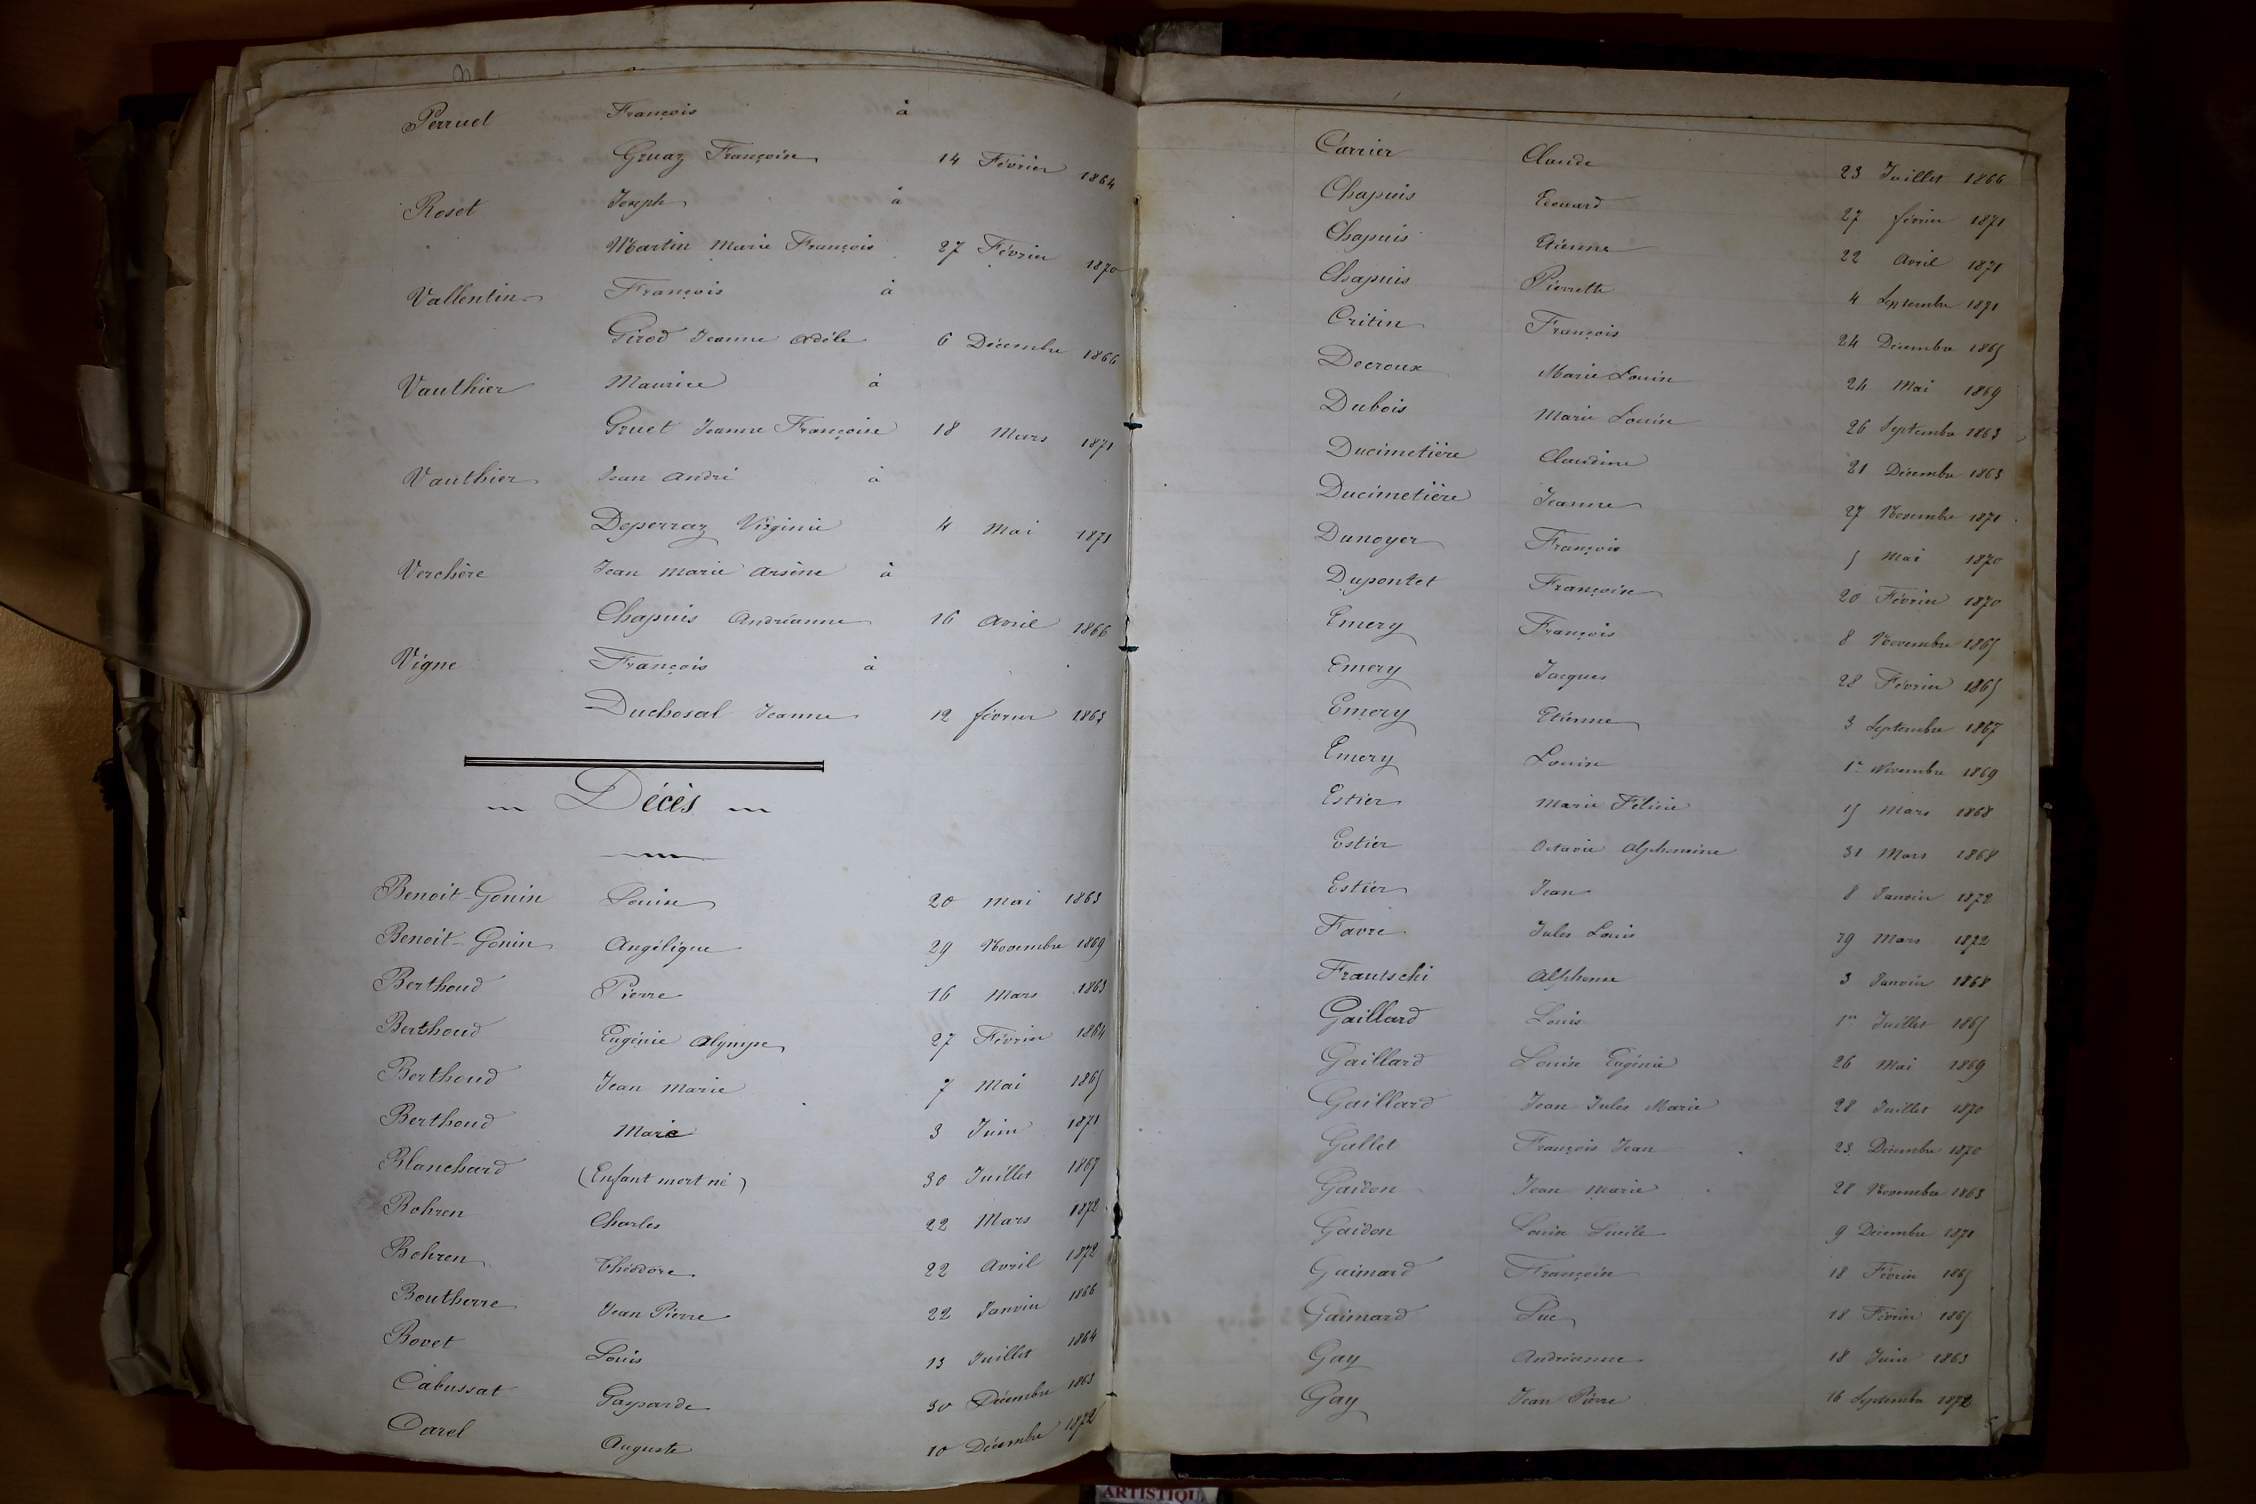 Perruet François à
Gruaz Françoise 14 Février 1864
Roset Joseph à
Martin Marie François 27 Février 1870
Vallentin François à
Girod Jeanne Adèle 6 Décembre 1866
Vauthier Maurice à
Gruet Jeanne Françoise 18 Mars 1871
Vauthier Jean André à
Deperraz Virginie 4 Mai 1871
Verchère Jean Marie Arsène à
Chapuis Andréanne 16 Avril 1866
Vigne François à
Duchosal Jeanne 12 février 1863
Décès
Benoit-Gonin Louise 20 Mai 1863
Benoit-Gonin Angélique 29 Novembre 1869
Berthoud Pierre 16 Mars 1863
Berthoud Eugénie Olympe 27 Février 1864
Berthoud Jean Marie 7 Mai 1865
Berthoud Marie 3 Juin 1871
Blanchard (Enfant mort né) 30 Juillet 1867
Bohren Charles 22 Mars 1872
Bohren Théodore 22 Avril 1872
Boutherre Jean Pierre 22 Janvier 1866
Bovet Louis 13 Juillet 1864
Cabussat Gasparde 30 Décembre 1863
Carel Auguste 10 Décembre 1872
Carrier Claude 23 Juillet 1866
Chapuis Edouard 27 février 1871
Chapuis Etienne 22 Avril 1871
Chapuis Pierrette 4 Septembre 1871
Critin François 24 Décembre 1865
Decroux Marie Louise 24 Mai 1869
Dubois Marie Louise 26 Septembre 1863
Ducimetière Claudine 21 Décembre 1863
Ducimetière Jeanne 27 Novembre 1871
Dunoyer François 5 Mai 1870
Dupontet Françoise 20 Février 1870
Emery François 8 Novembre 1865
Emery Jacques 28 Février 1865
Emery Etienne 3 Septembre 1867
Emery Louise 1er Novembre 1869
Estier Marie Félicie 15 Mars 1868
Estier Octavie Alphonsine 31 Mars 1868
Estier Jean 8 Janvier 1872
Favre Jules Louis 29 Mars 1872
Frautschi Alphonse 3 Janvier 1868
Gaillard Louis 1er Juillet 1865
Gaillard Louise Eugénie 26 Mai 1869
Gaillard Jean Jules Marie 28 Juillet 1870
Gallet François Jean 23 Décembre 1870
Gaidon Jean Marie 28 Novembre 1863
Gaidon Louise Lucile 9 Décembre 1871
Gaimard Françoise 18 Février 1865
Gaimard Luc 18 Février 1865
Gay Andréanne 18 Juin 1863
Gay Jean Pierre 16 Septembre 1872
ARTISTIQU